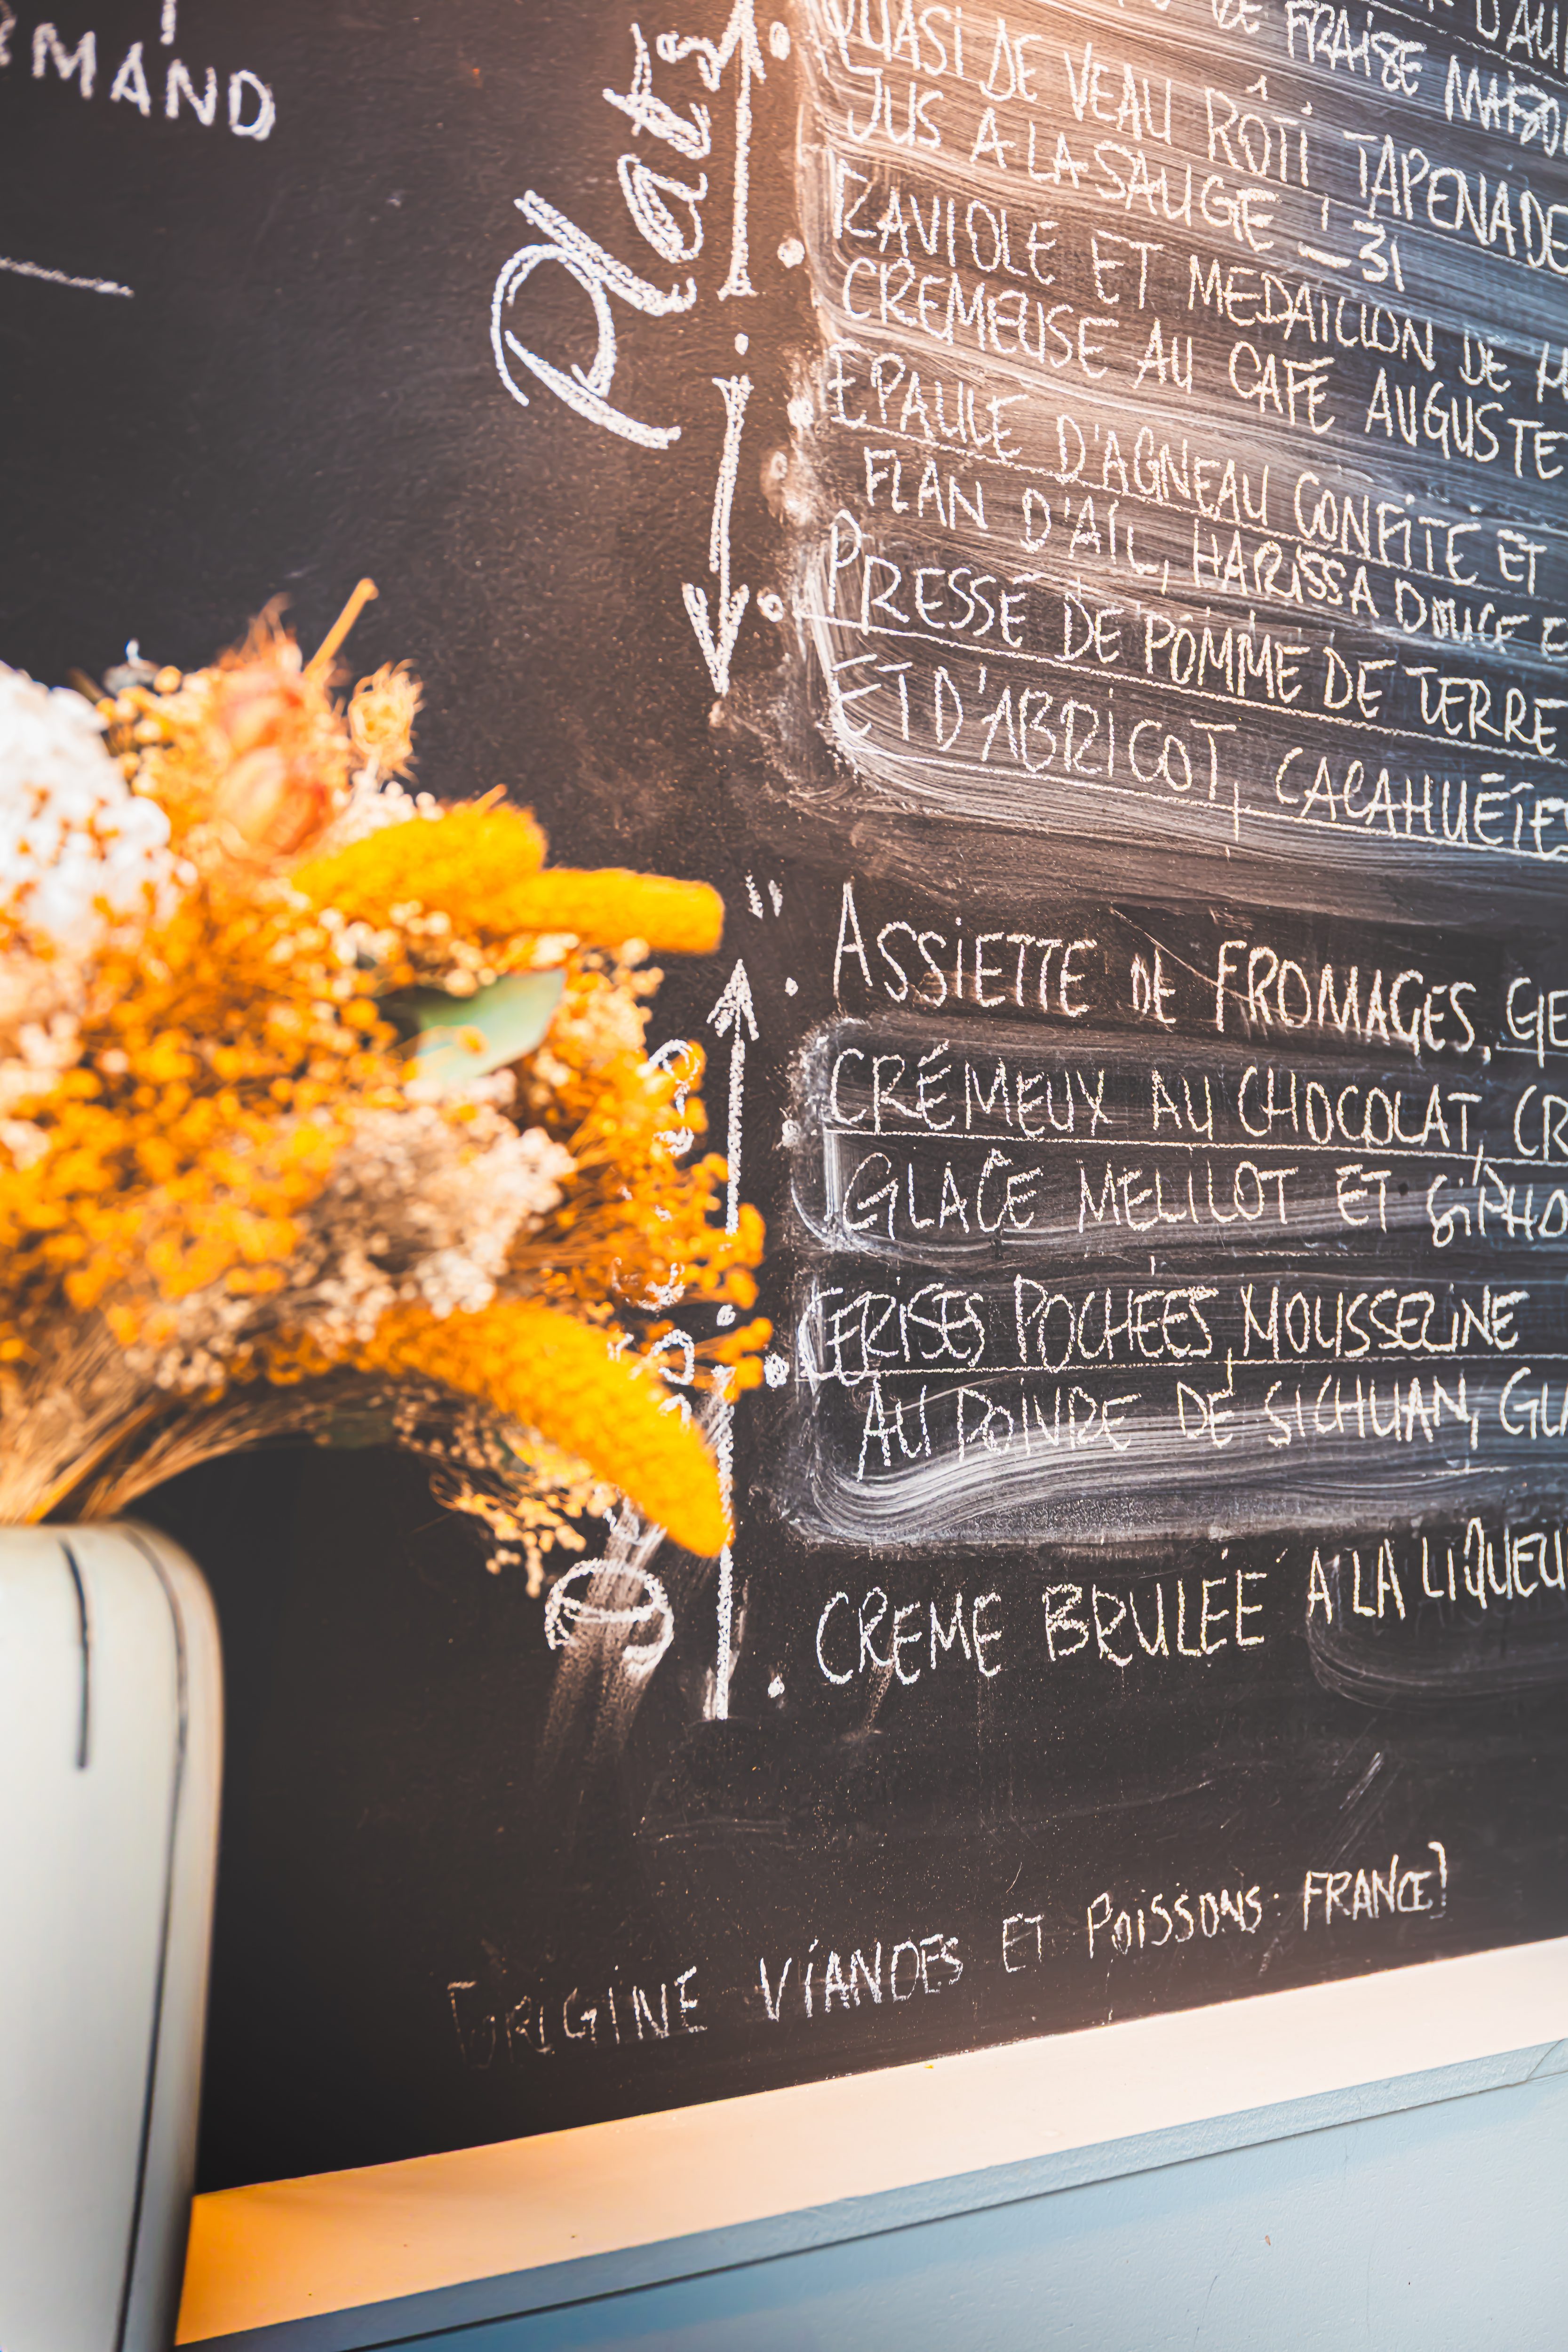 RMAND
Plats
DE FRAISE MAISON
QUASI DE VEAU RÔTI TAPENADE
JUS A LA SAUGE _'31
RAVIOLE ET MEDAILLON DE
CREMEUSE AU CAFE AUGUSTE
EPAULE D'AGNEAU CONFITE ET
FLAN D'AIL, HARISSA DOUCE E
PRESSÉ DE POMME DE TERRE
ET D'ABRICOT, CACAHUÉTE
ASSIETTE DE FROMAGES, GE
CRÉMEUX AU CHOCOLAT, CR
GLACE MELILOT ET SIPHO
CERISES POCHÉES, MOUSSELINE
AU POIVRE DE SICHUAN, GL
CREME BRULÉE A LA LIQUEU
ORIGINE VIANDES ET POISSONS: FRANCE!